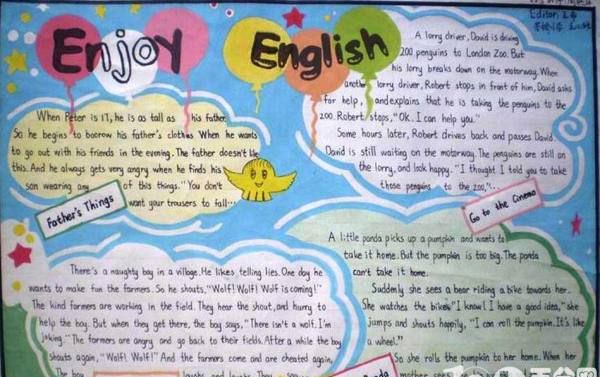 Enjoy English
Editor
When Peter is 17, he is as tall as his father.
So he begins to boorow his father's clothes When he wants
to go out with his friends in the evening. The father doesn't like
this. And he always gets very angry when he finds his
son wearing any of this things. "You don't
want your trousers to fall...
Father's Things
A lorry driver, David is driving
200 penguins to London Zoo. But
his lorry breaks down on the motorway. When
another lorry driver, Robert stops in front of him, David asks
for help, and explains that he is taking the penguins to the
zoo. Robert stops, "OK. I can help you."
Some hours later, Robert drives back and passes David
David is still waiting on the motorway. The penguins are still on
the lorry, and look happy. "I thought I told you to take
those penguins to the zoo,"...
Go to the Cinema
There's a naughty boy in a village. He likes telling lies. One day he
wants to make fun the farmers. So he shouts, "Wolf! Wolf! Wolf is coming!"
The kind farmers are working in the field. They hear the shout, and hurry to
help the boy. But when they get there, the boy says, "There isn't a wolf. I'm
joking." The farmers are angry and go back to their fields. After a while the boy
shouts again, "Wolf! Wolf!" And the farmers come and are cheated again,
The boy laughs and laughs. They
A little panda picks up a pumpkin and wants to
take it home. But the pumpkin is too big. The panda
can't take it home.
Suddenly she sees a bear riding a bike towards her.
She watches the bike. "I know! I have a good idea," she
jumps and shouts happily, "I can roll the pumpkin. It's like
a wheel."
So she rolls the pumpkin to her home. When her
mother
Panda